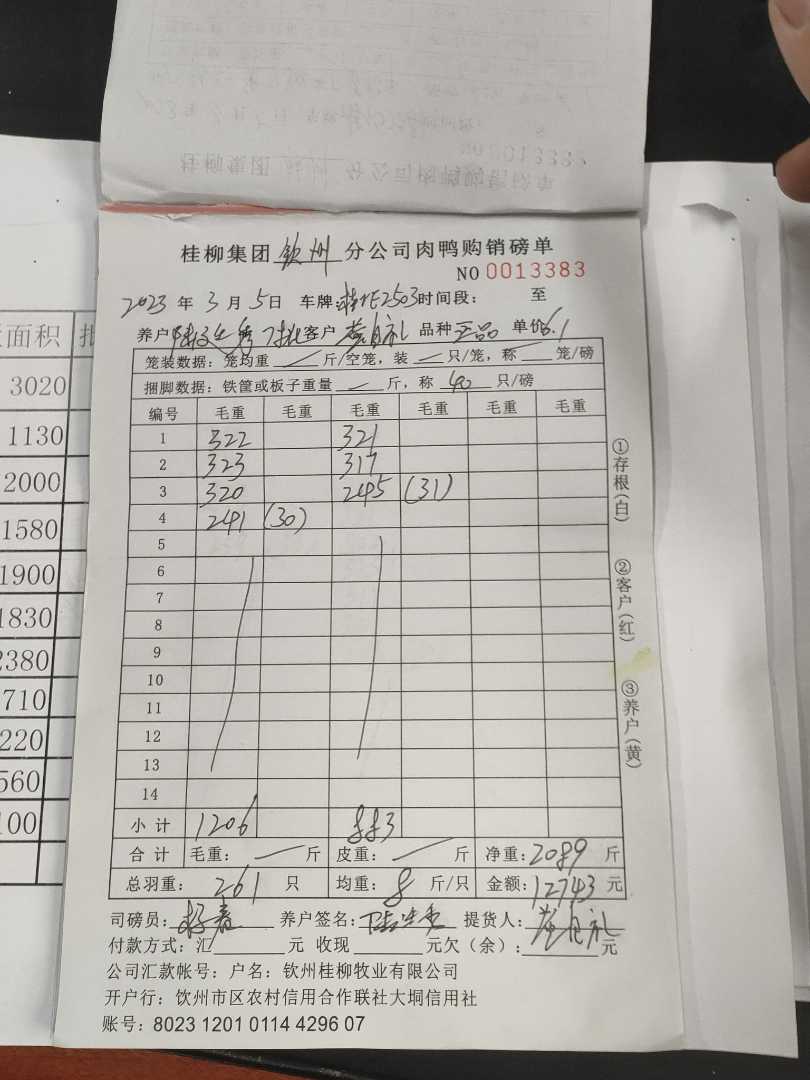 桂柳集团 钦州 分公司肉鸭购销磅单
NO 0013383
2023 年 3 月 5 日 车牌: 2503 时间段: 至
养户 客户 品种 正品 单价 6.1
笼装数据: 笼均重 斤/空笼, 装 只/笼, 称 笼/磅
捆脚数据: 铁筐或板子重量 斤, 称 40 只/磅
编号 毛重 毛重 毛重 毛重 毛重 毛重
1 322 321
2 323 317
3 320 245 (31)
4 241 (30)
5
6
7
8
9
10
11
12
13
14
小计 1206 883
合计 毛重: 斤 皮重: 斤 净重: 2089 斤
总羽重: 261 只 均重: 8 斤/只 金额: 12743 元
司磅员: 养户签名: 提货人:
付款方式: 汇 元 收现 元欠 (余): 元
公司汇款帐号: 户名: 钦州桂柳牧业有限公司
开户行: 饮州市区农村信用合作联社大垌信用社
账号: 8023 1201 0114 4296 07
①存根(白)
②客户(红)
③养户(黄)
面积
3020
1130
2000
1580
1900
1830
2380
710
220
560
100